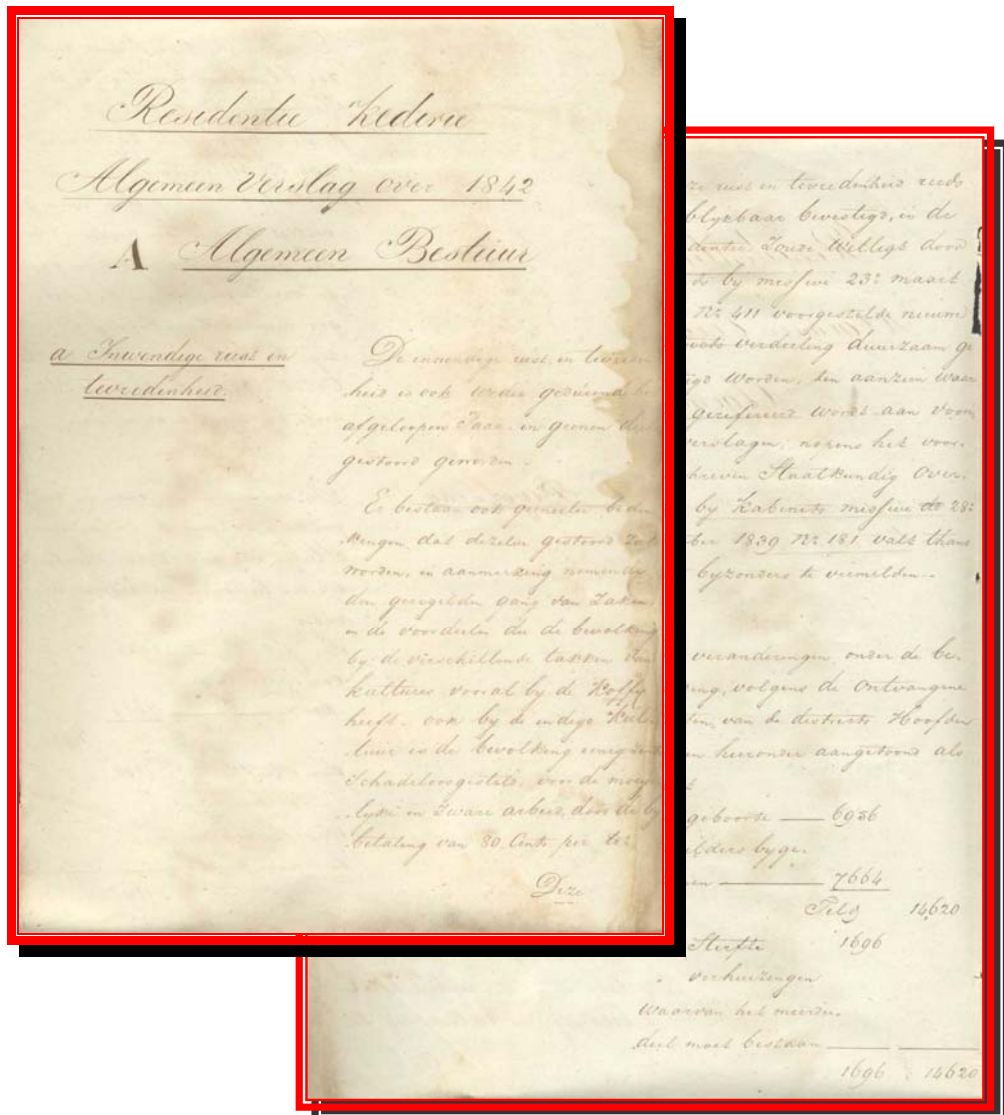 Residentie Kederie
Algemeen Verslag over 1842
A Algemeen Bestuur
a Inwendige rust en
tevredenheid.
De inwendige rust en tevreden
heid is ook weder gedurende het
afgeloopen Jaar in geenen deele
gestoord geworden.
Er bestaan ook geenerlei beden
kingen dat dezelve gestoord zal
worden, in aanmerking nemende
den geregelden gang van zaken
en de voordeelen die de bevolking
by de verschillende takken van
kultures vooral by de Koffy
heeft. ook by de indigo Kul
tuur is de bevolking eenigzins
Schadeloosgesteld, voor de moeye
lyke en zware arbeid, door de by
betaling van 80 Cents per
Deze
ze rust en tevredenheid reeds
blykbaar bevestigd, in de
Zoude Welligt door
by missive 23: maart
No 411 voorgestelde nieuwe
verdeeling duurzaam ge
igd worden, ten aanzien waar
gerefereerd wordt aan voor
verslagen; nopens het voor
hreven Staatkundig Over
by Kabinets missive de 28:
ber 1839 No 181 valt thans
byzonders te vermelden.
veranderingen onder de be
ing, volgens de Ontvangene
ten van de districts Hoofden
en hieronder aangetoond als
geboorte — 6956
elders byge
en — 7664
Telg 14620
Sterfte 1696
" verhuizingen
waarvan het meeren
deel moet bestaan
1696 14620